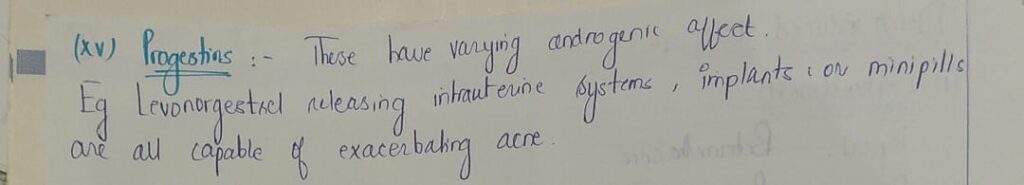 (xv) Progestins :- These have varying androgenic affect.
Eg Levonorgestrel releasing intrauterine systems, implants or minipills
are all capable of exacerbating acne.